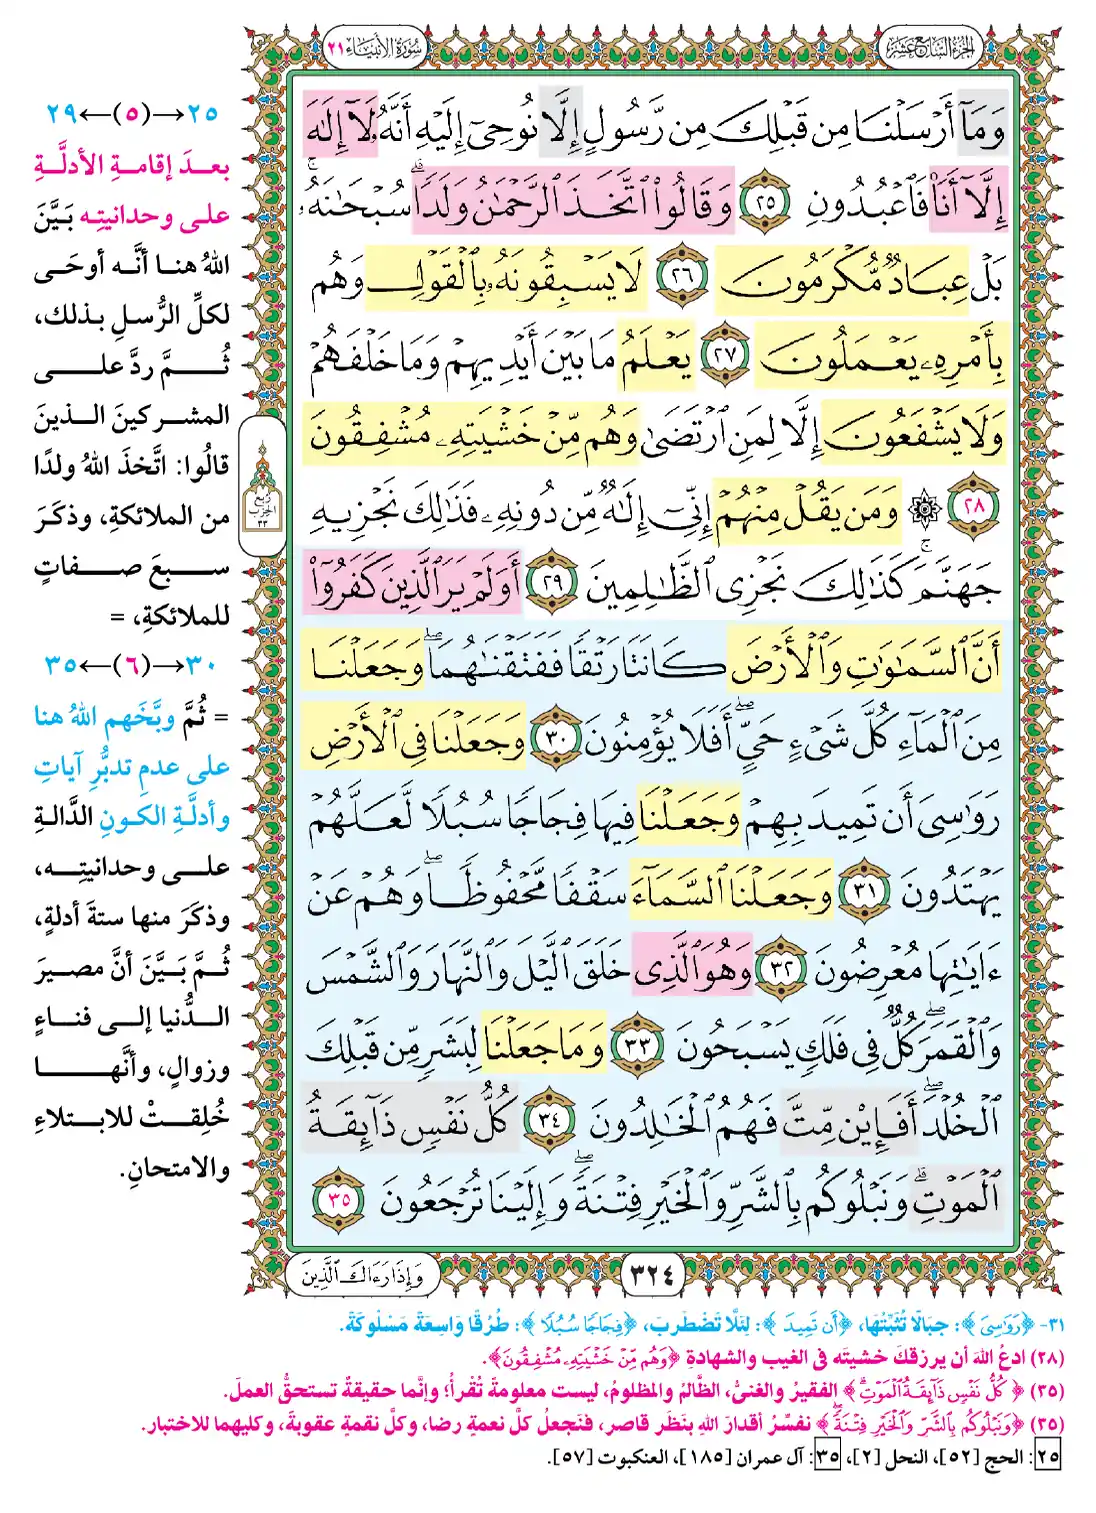 الجزء السابع عشر
سورة الأنبياء ٢١
وَمَآ أَرْسَلْنَا مِن قَبْلِكَ مِن رَّسُولٍ إِلَّا نُوحِىٓ إِلَيْهِ أَنَّهُۥ لَآ إِلَٰهَ
إِلَّآ أَنَا۠ فَٱعْبُدُونِ ٢٥ وَقَالُوا۟ ٱتَّخَذَ ٱلرَّحْمَٰنُ وَلَدًا ۗ سُبْحَٰنَهُۥ ۚ
بَلْ عِبَادٌ مُّكْرَمُونَ ٢٦ لَا يَسْبِقُونَهُۥ بِٱلْقَوْلِ وَهُم
بِأَمْرِهِۦ يَعْمَلُونَ ٢٧ يَعْلَمُ مَا بَيْنَ أَيْدِيهِمْ وَمَا خَلْفَهُمْ
وَلَا يَشْفَعُونَ إِلَّا لِمَنِ ٱرْتَضَىٰ وَهُم مِّنْ خَشْيَتِهِۦ مُشْفِقُونَ
٢٨ ۞ وَمَن يَقُلْ مِنْهُمْ إِنِّىٓ إِلَٰهٌ مِّن دُونِهِۦ فَذَٰلِكَ نَجْزِيهِ
جَهَنَّمَ ۚ كَذَٰلِكَ نَجْزِى ٱلظَّٰلِمِينَ ٢٩ أَوَلَمْ يَرَ ٱلَّذِينَ كَفَرُوٓا۟
أَنَّ ٱلسَّمَٰوَٰتِ وَٱلْأَرْضَ كَانَتَا رَتْقًا فَفَتَقْنَٰهُمَا ۖ وَجَعَلْنَا
مِنَ ٱلْمَآءِ كُلَّ شَىْءٍ حَىٍّ ۖ أَفَلَا يُؤْمِنُونَ ٣٠ وَجَعَلْنَا فِى ٱلْأَرْضِ
رَوَٰسِىَ أَن تَمِيدَ بِهِمْ وَجَعَلْنَا فِيهَا فِجَاجًا سُبُلًا لَّعَلَّهُمْ
يَهْتَدُونَ ٣١ وَجَعَلْنَا ٱلسَّمَآءَ سَقْفًا مَّحْفُوظًا ۖ وَهُمْ عَنْ
ءَايَٰتِهَا مُعْرِضُونَ ٣٢ وَهُوَ ٱلَّذِى خَلَقَ ٱلَّيْلَ وَٱلنَّهَارَ وَٱلشَّمْسَ
وَٱلْقَمَرَ ۖ كُلٌّ فِى فَلَكٍ يَسْبَحُونَ ٣٣ وَمَا جَعَلْنَا لِبَشَرٍ مِّن قَبْلِكَ
ٱلْخُلْدَ ۖ أَفَإِي۟ن مِّتَّ فَهُمُ ٱلْخَٰلِدُونَ ٣٤ كُلُّ نَفْسٍ ذَآئِقَةُ
ٱلْمَوْتِ ۗ وَنَبْلُوكُم بِٱلشَّرِّ وَٱلْخَيْرِ فِتْنَةً ۖ وَإِلَيْنَا تُرْجَعُونَ ٣٥
٣٢٤
وَإِذَا رَءَاكَ ٱلَّذِينَ
ربع
الحزب
٣٣
٢٥→(٥)←٢٩
بعدَ إقامةِ الأدلَّةِ
على وحدانيتِه بَيَّنَ
اللهُ هنا أنَّه أوحَى
لكلِّ الرُّسلِ بذلك،
ثُمَّ ردَّ على
المشركينَ الذينَ
قالُوا: اتَّخذَ اللهُ ولدًا
من الملائكةِ، وذكَرَ
سبعَ صفاتٍ
للملائكةِ، =
٣٠→(٦)←٣٥
= ثُمَّ وبَّخَهم اللهُ هنا
على عدمِ تدبُّرِ آياتِ
وأدلَّةِ الكونِ الدَّالةِ
على وحدانيتِه،
وذكَرَ منها ستةَ أدلةٍ،
ثُمَّ بَيَّنَ أنَّ مصيرَ
الدُّنيا إلى فناءٍ
وزوالٍ، وأنَّها
خُلِقتْ للابتلاءِ
والامتحانِ.
٣١- ﴿رَوَٰسِىَ﴾: جِبَالًا تُثَبِّتُهَا، ﴿أَن تَمِيدَ﴾: لِئَلَّا تَضْطَرِبَ، ﴿فِجَاجًا سُبُلًا﴾: طُرُقًا وَاسِعَةً مَسْلُوكَةً.
(٢٨) ادعُ اللهَ أن يرزقكَ خشيتَه في الغيب والشهادةِ ﴿وَهُم مِّنْ خَشْيَتِهِۦ مُشْفِقُونَ﴾.
(٣٥) ﴿كُلُّ نَفْسٍ ذَآئِقَةُ ٱلْمَوْتِ ۗ﴾ الفقيرُ والغنيُّ، الظَّالمُ والمظلومُ، ليست معلومةً تُقْرأُ؛ وإنَّما حقيقةٌ تستحقُّ العملَ.
(٣٥) ﴿وَنَبْلُوكُم بِٱلشَّرِّ وَٱلْخَيْرِ فِتْنَةً ۖ﴾ نفسِّرُ أقدارَ اللهِ بنَظَرٍ قاصرٍ، فنَجعلُ كلَّ نعمةٍ رضا، وكلَّ نقمةٍ عقوبةً، وكليهما للاختبارِ.
٢٥: الحج [٥٢]، النحل [٢]، ٣٥: آل عمران [١٨٥]، العنكبوت [٥٧].